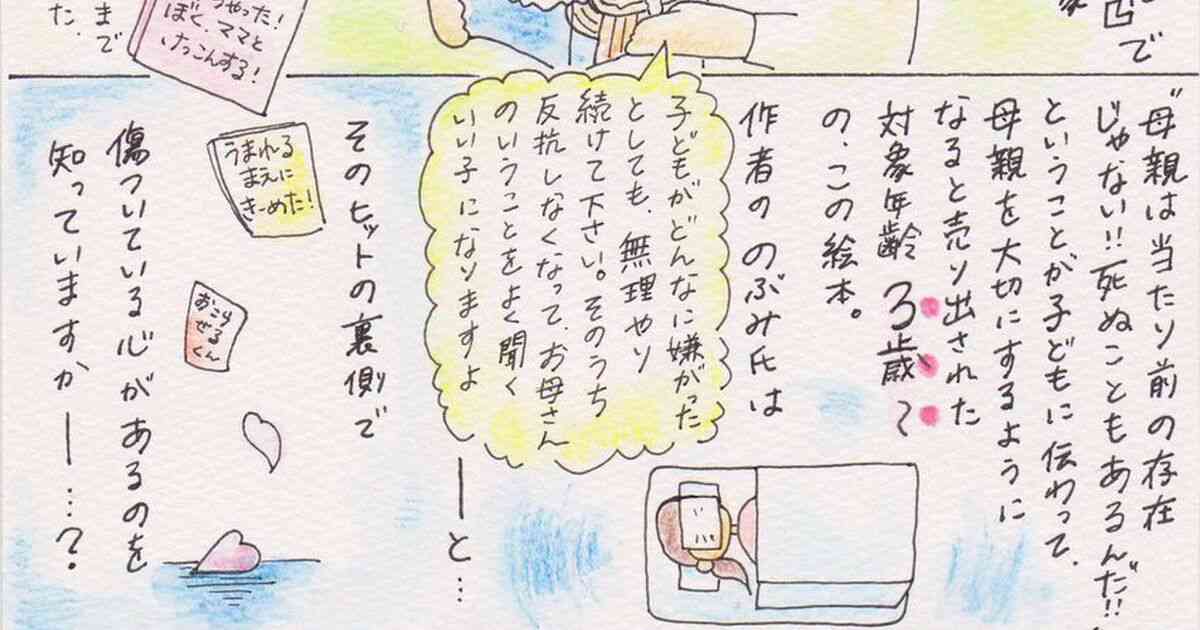 凸で
まで
た.
やった!
ぼく、ママと
けっこんする!
"母親は当たり前の存在
じゃない!!死ぬこともあるんだ!!
ということが子どもに伝わって、
母親を大切にするように
なると売り出された
対象年齢 3歳〜
の、この絵本。
作者の のぶみ氏は
子どもがどんなに嫌がった
としても、無理やり
続けて下さい。そのうち
反抗しなくなって、お母さん
のいうことをよく聞く
いい子 になりますよ
——と…
そのヒットの裏側で
うまれる
まえに
きーめた!
おこら
せる
くん
傷ついている心があるのを
知っていますか——…?